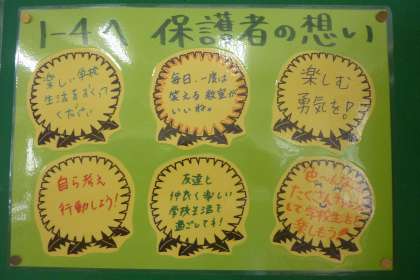 1-4へ 保護者の想い
楽しい学校
生活をおくって
ください
毎日、一度は
笑える教室が
いいね。
楽しむ
勇気を!
自ら考え
行動しよう!
友達と
仲良く楽しい
学校生活を
過ごしてネ!
色〜んな
たくさん
して学校生活
楽しもう